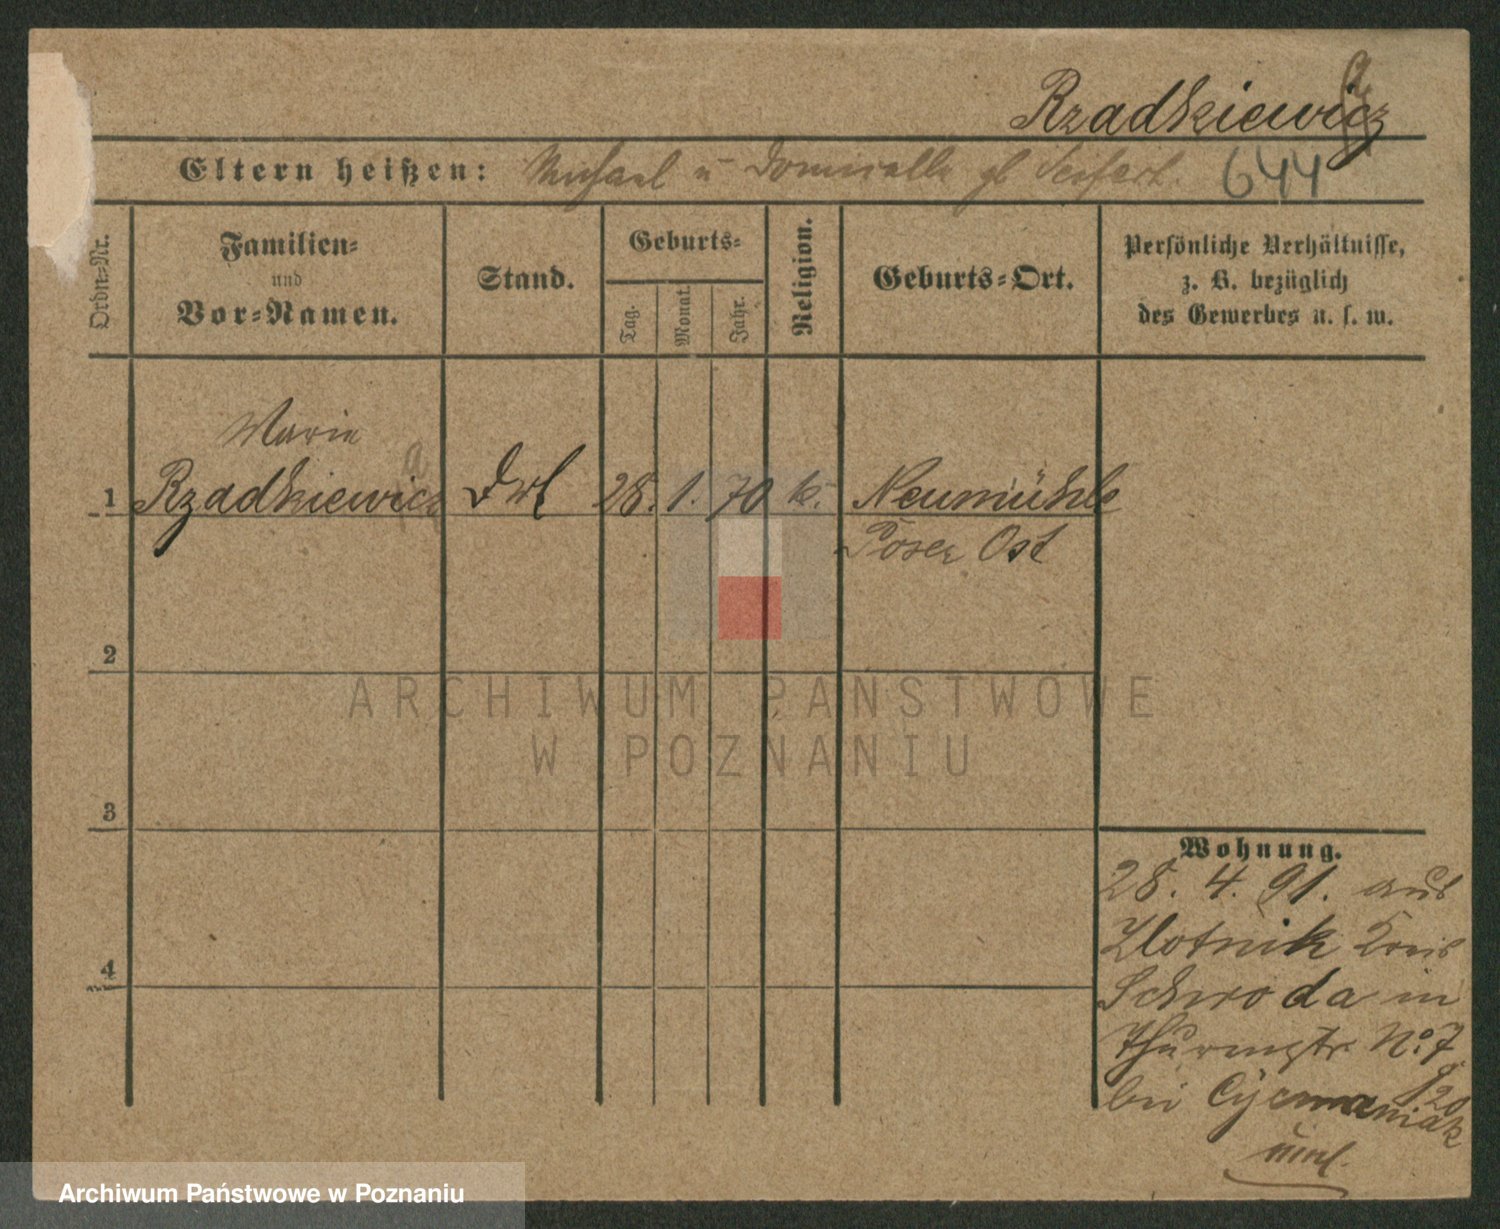 Rzadkiewicz
a
Eltern heißen: Michael u Domicella gb Seifert.
644
Ordn=Nr.
Familien=
und
Vor=Namen.
Stand.
Geburts=
Tag.
Monat.
Jahr.
Religion.
Geburts=Ort.
Persönliche Verhältnisse,
z. B. bezüglich
des Gewerbes u. s. w.
Marie
a
1 Rzadkiewicz 28. 1. 70 k. Neumühle
Posen Ost
2
3
4
Wohnung.
28. 4. 91. aus
Zlotnik Kreis
Schroda in
No. 7
bei
ARCHIWUM PAŃSTWOWE
W POZNANIU
Archiwum Państwowe w Poznaniu